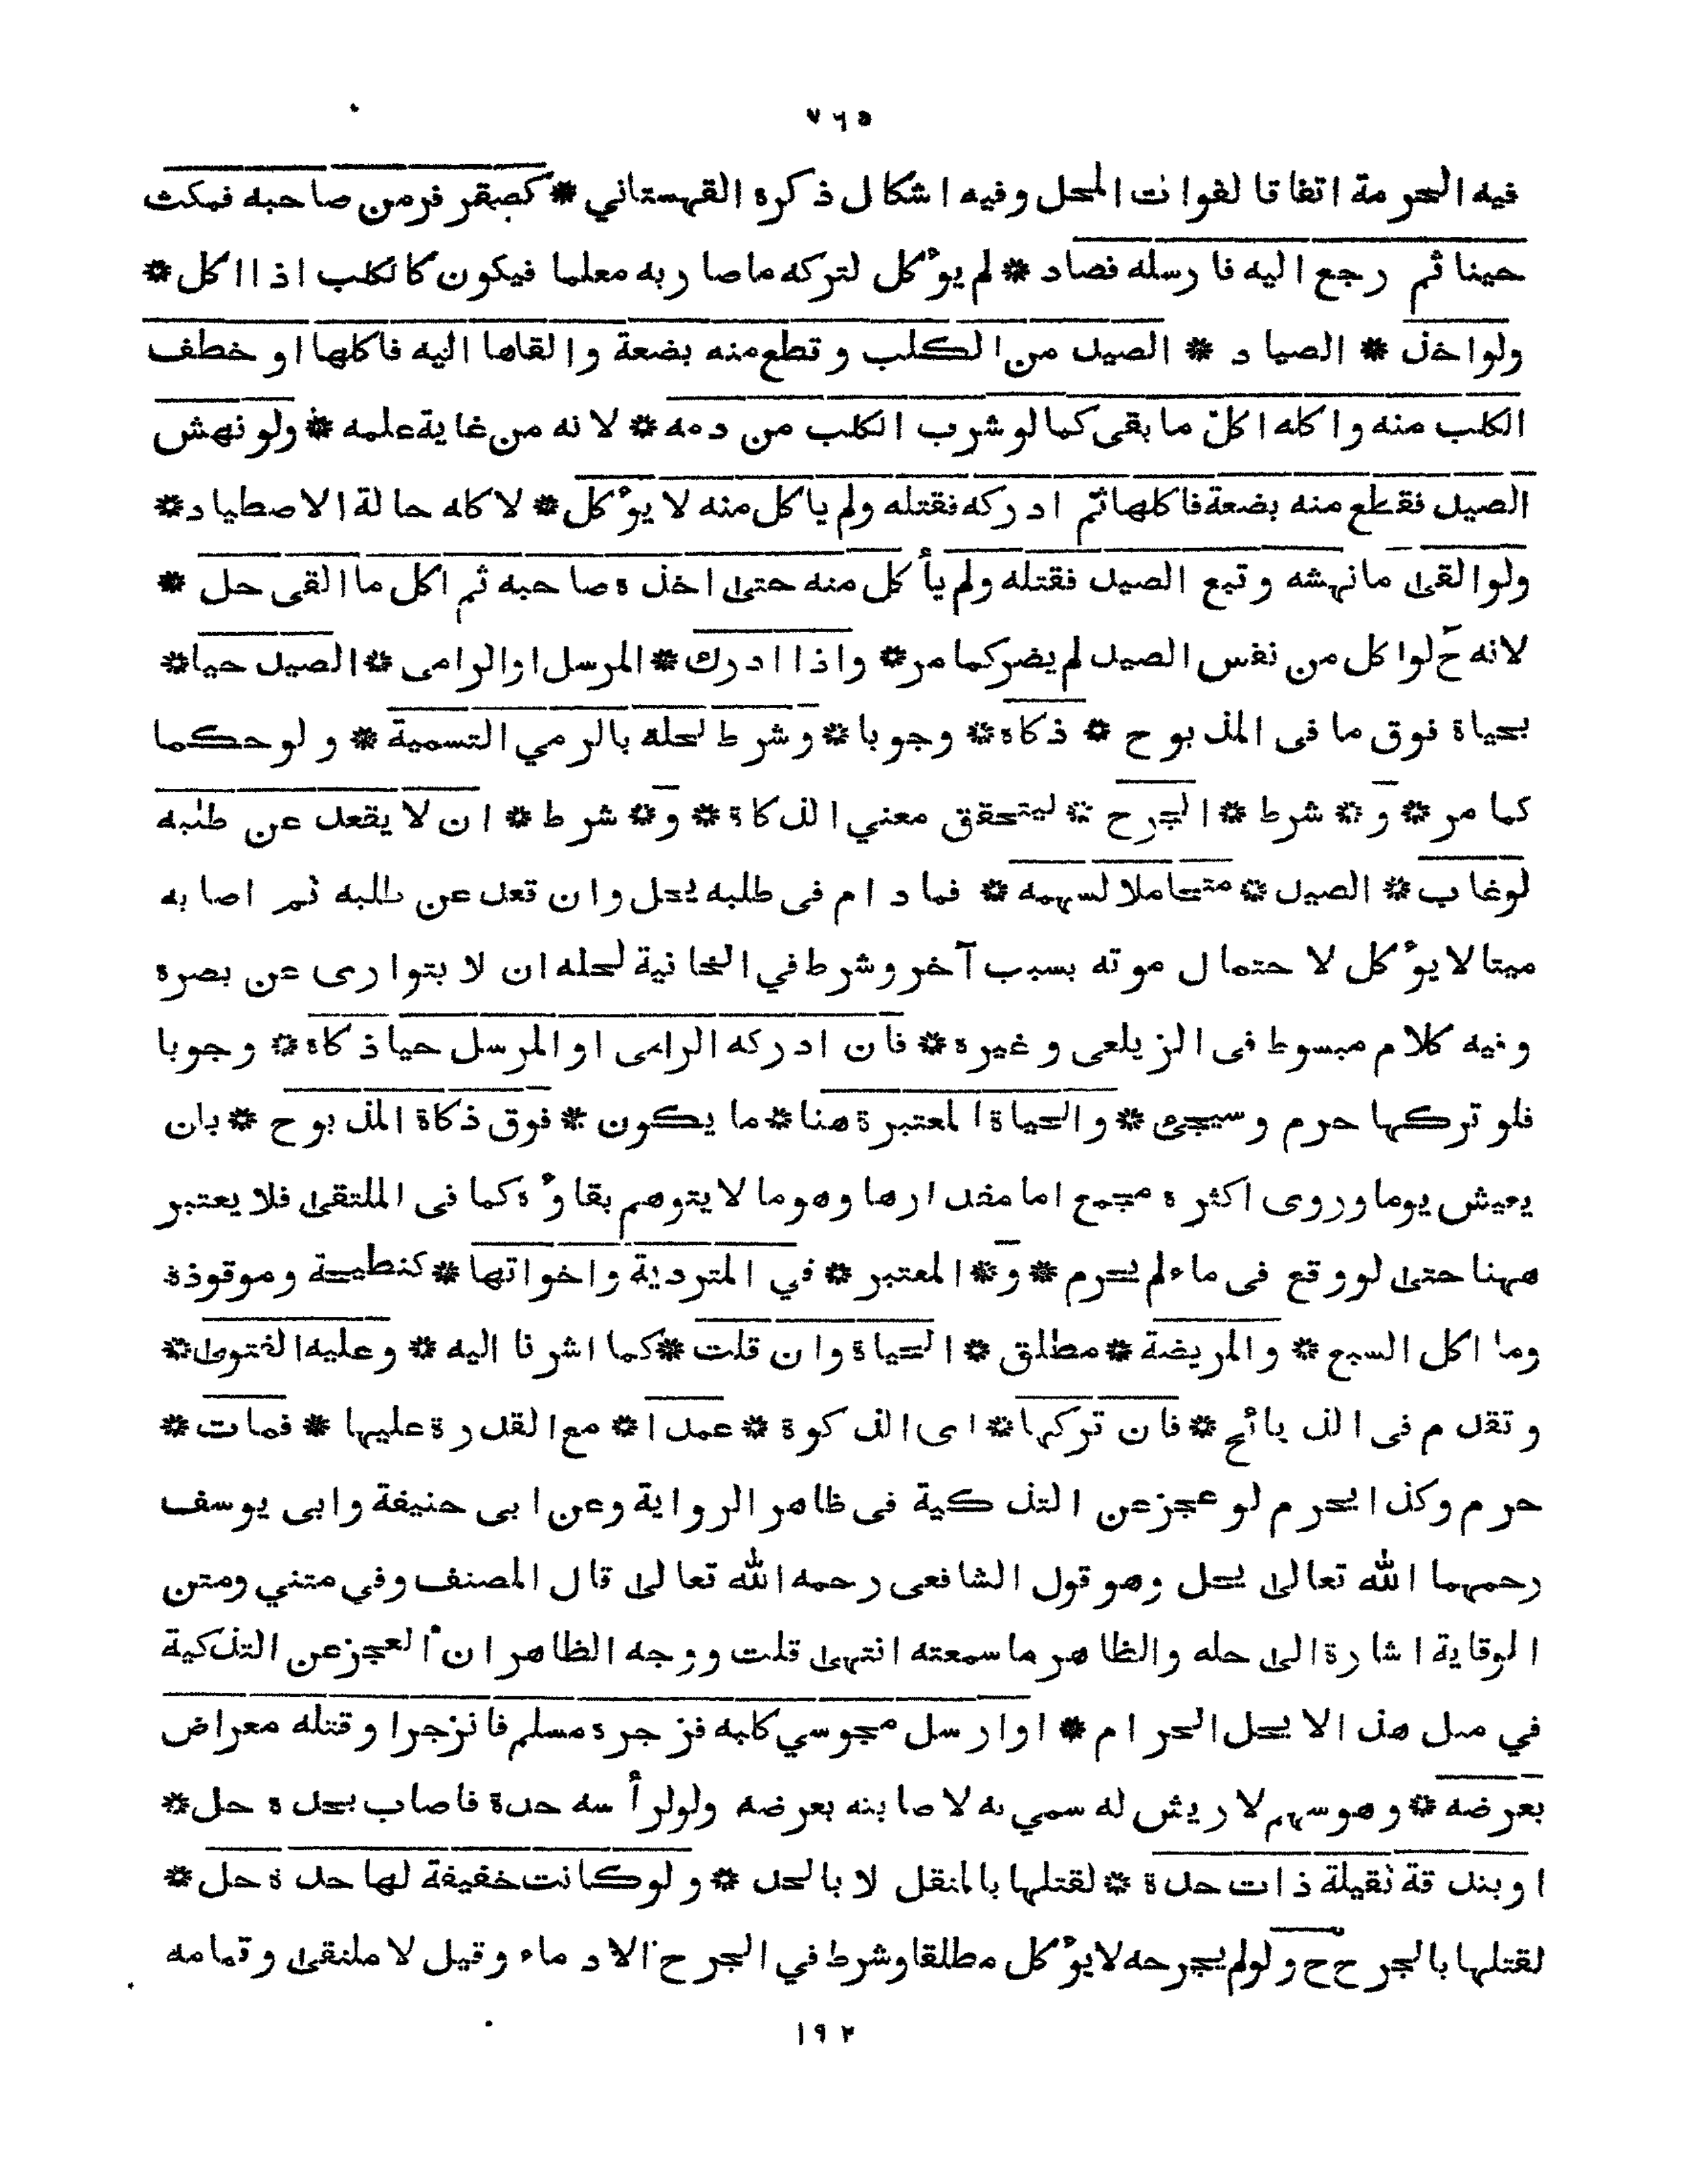 ٧٦٥
فيه الحرمة اتفاقا لفوات المحل وفيه اشكال ذكره القهستاني * كصقر فر من صاحبه فمكث
حينا ثم رجع اليه فارسله فصاد * لم يؤكل لتركه ماصار به معلما فيكون كالكلب اذا اكل *
ولو اخذ * الصياد * الصيد من الكلب وقطع منه بضعة والقاها اليه فاكلها او خطف
الكلب منه واكله اكل ما بقى كما لو شرب الكلب من دمه * لانه من غاية علمه * ولو نهش
الصيد فقطع منه بضعة فاكلها ثم ادركه فقتله ولم ياكل منه لا يؤكل * لاكله حالة الاصطياد *
ولو القى ما نهشه وتبع الصيد فقتله ولم يأكل منه حتى اخذه صاحبه ثم اكل ما القى حل *
لانه ح لو اكل من نفس الصيد لم يضر كما مر * واذا ادرك * المرسل او الرامى * الصيد حيا *
بحياة فوق ما فى المذبوح * ذكاه * وجوبا * وشرط لحله بالرمي التسمية * ولو حكما
كما مر * و * شرط * الجرح * ليتحقق معني الذكاة * و * شرط * ان لا يقعد عن طلبه
لو غاب * الصيد * متحاملا لسهمه * فما دام فى طلبه يحل وان قعد عن طلبه ثم اصابه
ميتا لا يؤكل لاحتمال موته بسبب آخر وشرط في الخانية لحله ان لا يتوارى عن بصره
وفيه كلام مبسوط فى الزيلعى وغيره * فان ادركه الرامى او المرسل حيا ذكاه * وجوبا
فلو تركها حرم وسيجئ * والحياة المعتبرة هنا * ما يكون * فوق ذكاة المذبوح * بان
يعيش يوما وروى اكثره مجمع اما مقدارها وهو ما لا يتوهم بقاؤه كما فى الملتقى فلا يعتبر
ههنا حتى لو وقع فى ماء لم يحرم * و * المعتبر * في المتردية واخواتها * كنطيحة وموقوذة
وما اكل السبع * والمريضة * مطلق * الحياة وان قلت * كما اشرنا اليه * وعليه الفتوى *
وتقدم فى الذبائح * فان تركها * اى الذكوة * عمدا * مع القدرة عليها * فمات *
حرم وكذا يحرم لو عجز عن التذكية فى ظاهر الرواية وعن ابى حنيفة وابى يوسف
رحمهما الله تعالى يحل وهو قول الشافعى رحمه الله تعالى قال المصنف وفي متني ومتن
الوقاية اشارة الى حله والظاهر ما سمعته انتهى قلت ووجه الظاهر ان العجز عن التذكية
في مثل هذا لا يحل الحرام * او ارسل مجوسي كلبه فزجره مسلم فانزجر او قتله معراض
بعرضه * وهو سهم لا ريش له سمي به لاصابته بعرضه ولو لرأسه حدة فاصاب بحده حل *
او بندقة ثقيلة ذات حدة * لقتلها بالثقل لا بالحد * ولو كانت خفيفة لها حدة حل *
لقتلها بالجرح ح ولو لم يجرحه لا يؤكل مطلقا وشرط في الجرح الادماء وقيل لا ملتقى وتمامه
١٩٢